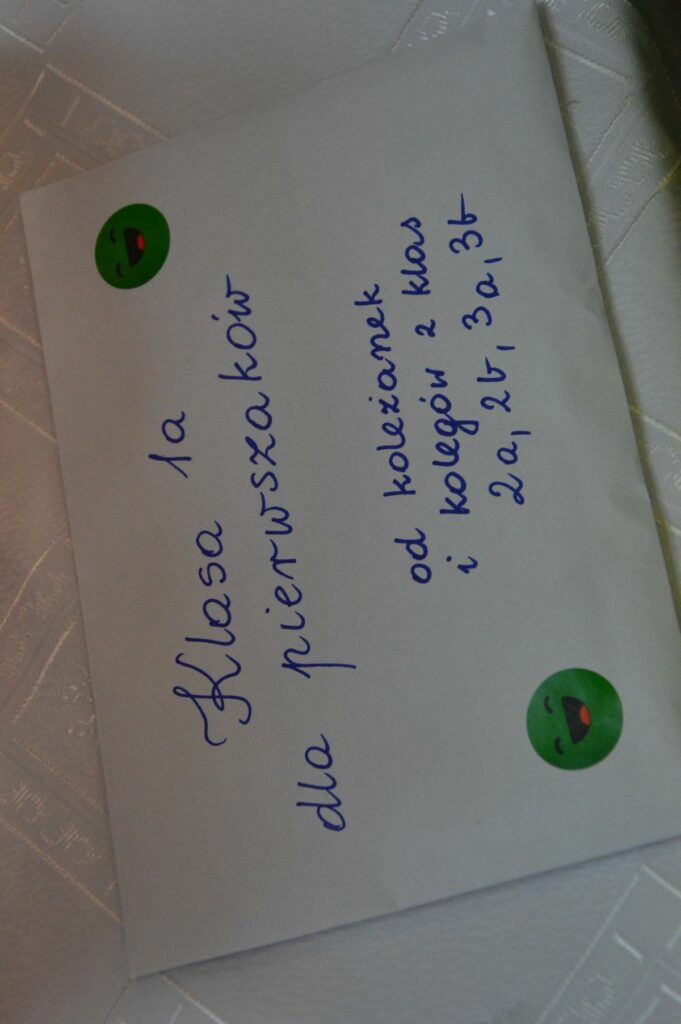 Klasa 1a
dla pierwszaków
od koleżanek
i kolegów z klas
2a, 2b, 3a, 3b